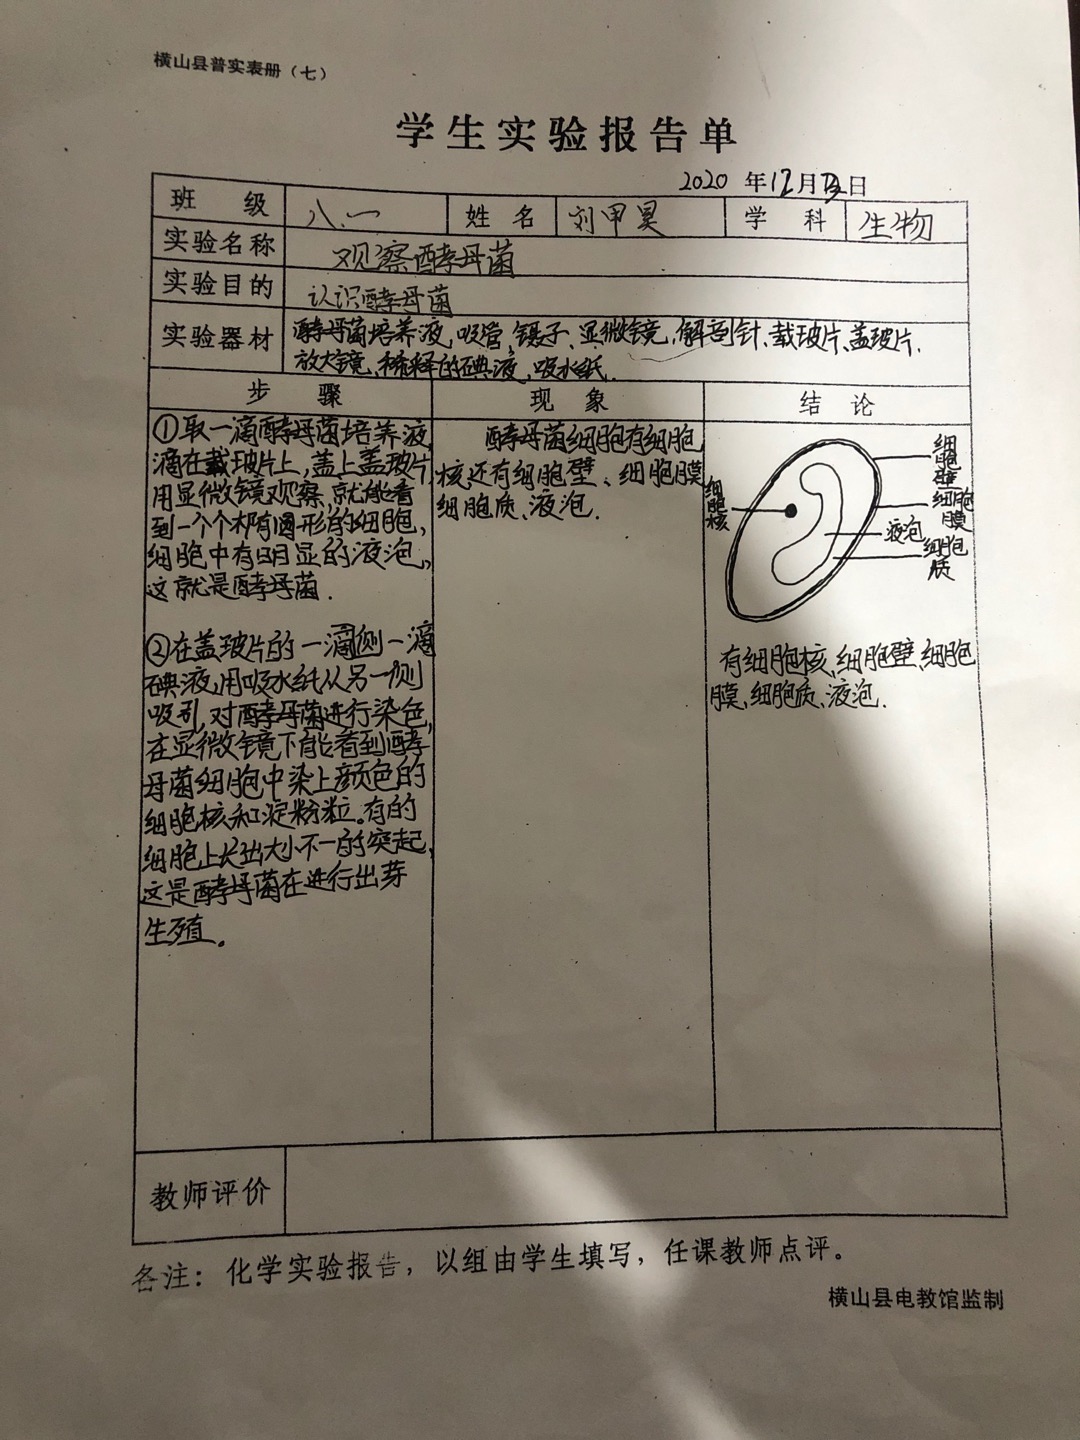 横山县普实表册（七）
学生实验报告单
2020 年12月 日
班 级 八.一 姓 名 刘甲昊 学 科 生物
实验名称 观察酵母菌
实验目的 认识酵母菌
实验器材 酵母菌培养液,吸管,镊子、显微镜,解剖针、载玻片、盖玻片.
放大镜、稀释的碘液,吸水纸.
步 骤 现 象 结 论
①取一滴酵母菌培养液
滴在载玻片上,盖上盖玻片
用显微镜观察,就能看
到一个个椭圆形的细胞,
细胞中有明显的液泡,
这就是酵母菌.
②在盖玻片的一滴侧一滴
碘液,用吸水纸从另一侧
吸引,对酵母菌进行染色,
在显微镜下能看到酵
母菌细胞中染上颜色的
细胞核和淀粉粒。有的
细胞上长出大小不一的突起,
这是酵母菌在进行出芽
生殖。
酵母菌细胞有细胞
核还有细胞壁、细胞膜
细胞质、液泡.
细胞核
细胞壁
细胞膜
液泡
细胞质
有细胞核、细胞壁、细胞
膜、细胞质、液泡.
教师评价
各注：化学实验报告，以组由学生填写，任课教师点评。
横山县电教馆监制